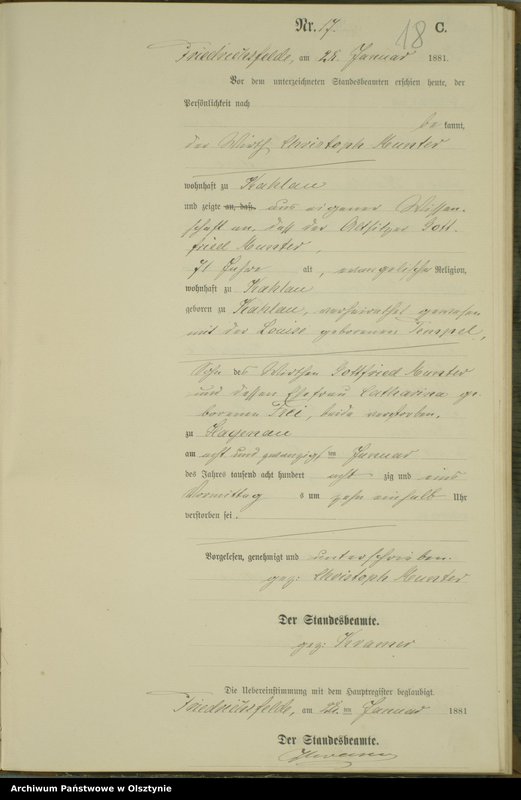 Nr. 17.
18
C.
Friedrichsfelde, am 28. Januar 1881.
Vor dem unterzeichneten Standesbeamten erschien heute, der
Persönlichkeit nach
be kannt,
der Wirth Christoph Munter
wohnhaft zu Kahlau
und zeigte an, daß, aus eigener Wissen-
schaft an, daß der Altsitzer Gott-
fried Munter,
71 Jahre alt, evangelischer Religion,
wohnhaft zu Kahlau
geboren zu Kahlau, verheirathet gewesen
mit der Louise geborenen Tempel,
Sohn des Wirthen Gottfried Munter
und dessen Ehefrau Catharina ge-
borenen Frei, beide verstorben,
zu Hagenau
am acht und zwanzigsten Januar
des Jahres tausend acht hundert acht zig und eins
Vormittag s um zehn einhalb Uhr
verstorben sei.
Vorgelesen, genehmigt und unterschrieben.
gez: Christoph Munter
Der Standesbeamte.
gez: Kramer
Die Uebereinstimmung mit dem Hauptregister beglaubigt.
Friedrichsfelde, am 28. ten Januar 1881
Der Standesbeamte.
Kramer
Archiwum Państwowe w Olsztynie